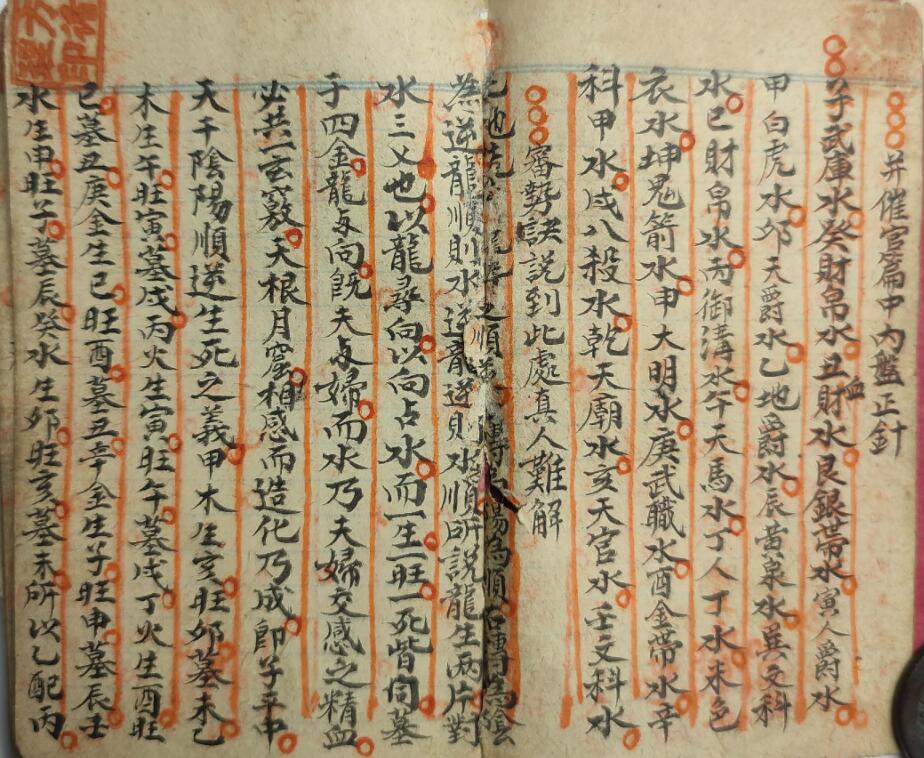 并催官篇中內盤正針
子武庫水癸財帛水丑血財水艮銀帶水寅人爵水
甲白虎水夘天爵水乙地爵水辰黃泉水巽文科
水巳財帛水丙御溝水午天馬水丁人丁水未色
衣水坤鬼箭水申大明水庚武職水酉金帶水辛
科甲水戍八殺水乾天廟水亥天官水壬文科水
審勢訣說到此處真人難解
地之順陽為順右轉為陰
為逆龍順則水逆龍逆則水順所說龍生兩片對
水三乂也以龍尋向以向占水而一生一旺一死皆同墓
于四金龍与向既夫与婦而水乃夫婦交感之精血
必共一玄竅天根月窟相感而造化乃成即子平中
天干陰陽順逆生死之義甲木生亥旺夘墓未乙
木生午旺寅墓戍丙火生寅旺午墓戍丁火生酉旺
巳墓丑庚金生巳旺酉墓丑辛金生子旺申墓辰壬
水生申旺子墓辰癸水生夘旺亥墓未所以乙配丙